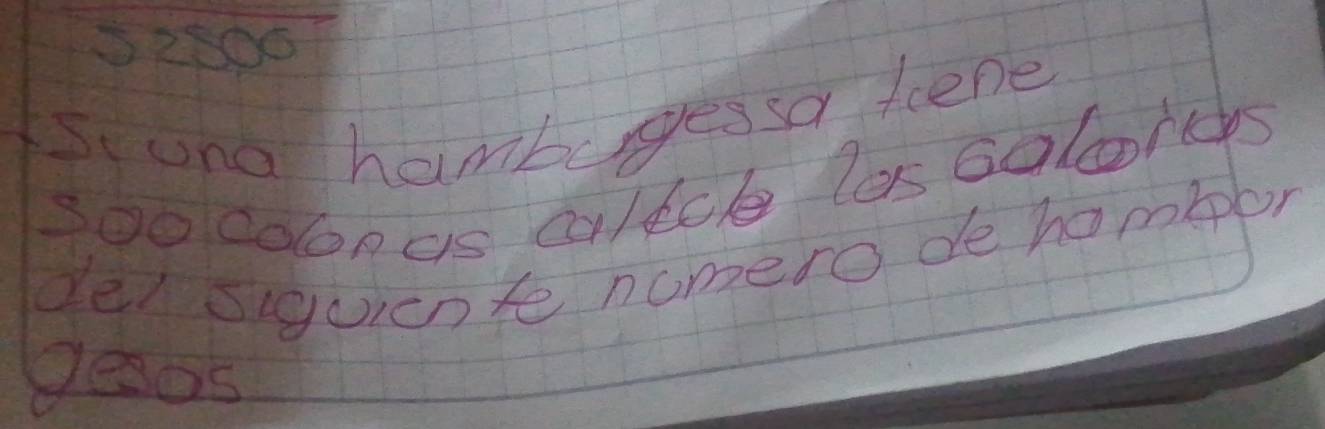 52500
Si una hamburgessa tiene
500 calorias calcule las calorias
del siguiente numero de hambur
gesas